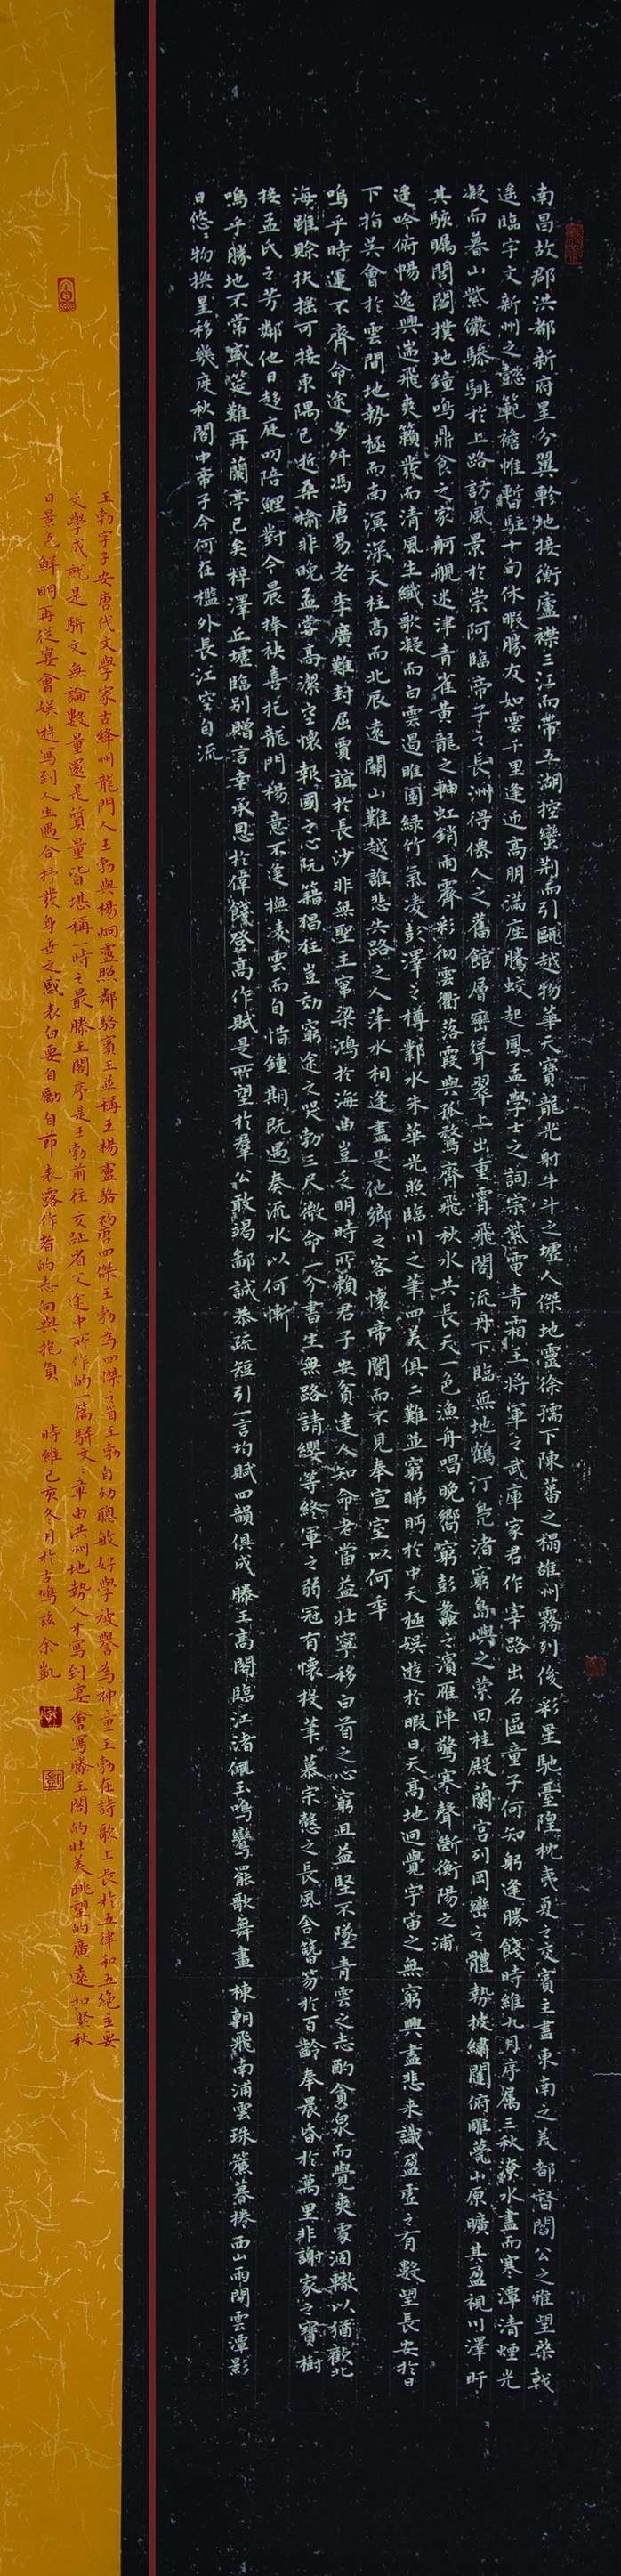 南昌故郡洪都新府星分翼軫地接衡廬襟三江而帶五湖控蠻荊而引甌越物華天寶龍光射牛斗之墟人傑地靈徐孺下陳蕃之榻雄州霧列俊彩星馳臺隍枕夷夏之交賓主盡東南之美都督閻公之雅望棨戟
遥臨宇文新州之懿範襜帷暫駐十旬休暇勝友如雲千里逢迎高朋滿座騰蛟起鳳孟學士之詞宗紫電青霜王將軍之武庫家君作宰路出名區童子何知躬逢勝餞時維九月序属三秋潦水盡而寒潭清煙光
凝而暮山紫儼驂騑於上路訪風景於崇阿臨帝子之長洲得僊人之舊館層巒聳翠上出重霄飛閣流丹下臨無地鶴汀鳧渚窮島嶼之萦回桂殿蘭宮列岡巒之體勢披繡闥俯雕甍山原曠其盈視川澤盱
其駭矚閭閻撲地鐘鳴鼎食之家舸艦迷津青雀黃龍之軸虹銷雨霽彩彻雲衢落霞與孤鶩齊飛秋水共長天一色漁舟唱晚嚮窮彭蠡之濱雁陣驚寒聲斷衡陽之浦
遥吟俯暢逸興遄飛爽籟發而清風生纖歌凝而白雲遏睢園緑竹氣凌彭澤之樽鄴水朱華光照臨川之筆四美俱二難並窮睇眄於中天極娛遊於暇日天高地迥覺宇宙之無窮興盡悲来識盈虛之有數望長安於日
下指吳會於雲間地勢極而南溟深天柱高而北辰遠關山難越誰悲失路之人萍水相逢盡是他鄉之客懷帝閽而不見奉宣室以何年
嗚乎時運不齊命途多舛馮唐易老李廣難封屈賈誼於長沙非無聖主竄梁鴻於海曲豈乏明時所賴君子安貧達人知命老當益壯寧移白首之心窮且益堅不墜青雲之志酌貪泉而覺爽處涸轍以猶歡北
海雖賒扶搖可接東隅已逝桑榆非晚孟嘗高潔空懷報國之心阮籍猖狂豈効窮途之哭勃三尺微命一介書生無路請纓等終軍之弱冠有懷投筆慕宗慤之長風舍簪笏於百齡奉晨昏於萬里非謝家之寶樹
接孟氏之芳鄰他日趨庭叨陪鯉對今晨捧袂喜托龍門楊意不逢撫凌雲而自惜鍾期既遇奏流水以何慚
嗚乎勝地不常盛筵難再蘭亭已矣梓澤丘墟臨别贈言幸承恩於偉餞登高作賦是所望於羣公敢竭鄙誠恭疏短引一言均賦四韻俱成滕王高閣臨江渚佩玉鳴鸞罷歌舞畫棟朝飛南浦雲珠簾暮捲西山雨閒雲潭影
日悠:物換星移幾度秋閣中帝子今何在檻外長江空自流
王勃字子安唐代文學家古絳州龍門人王勃與楊炯盧照鄰駱賓王並稱王楊盧駱初唐四傑王勃為四傑之首王勃自幼聰敏好學被譽為神童王勃在詩歌上長於五律和五絕主要
文學成就是駢文無論數量還是質量皆堪稱一時之最滕王閣序是王勃前往交趾省父途中所作的一篇駢文:章由洪州地勢人才寫到宴會寫滕王閣的壯美眺望的廣遠扣緊秋
日景色鮮明再從宴會娛遊寫到人生遇合抒發身世之感表白要自勵自節表露作者的志向與抱負 時維己亥冬月於古鳩茲余凱